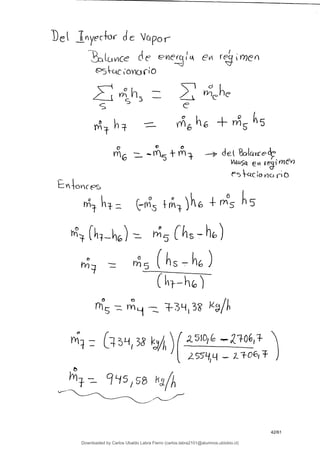 Del Inyector de Vapor
Balance de energía en régimen
estacionario
∑ṁₛhₛ = ∑ṁₑhₑ
s e
ṁ₇ h₇ = ṁ₆ h₆ + ṁ₅ h₅
ṁ₆ = -ṁ₅ + ṁ₇ → del Balance de
masa en régimen
estacionario
Entonces
ṁ₇ h₇ = (-ṁ₅ + ṁ₇) h₆ + ṁ₅ h₅
ṁ₇ (h₇-h₆) = ṁ₅ (h₅-h₆)
ṁ₇ = ṁ₅ (h₅ - h₆)
(h₇-h₆)
ṁ₅ = ṁ₄ = 734,38 kg/h
ṁ₇ = (734,38 kg/h) (2510,6 - 2706,7
2554,4 - 2706,7)
ṁ₇ = 945,58 kg/h
42/61
Downloaded by Carlos Ubaldo Labra Fierro (carlos.labra2101@alumnos.ubiobio.cl)